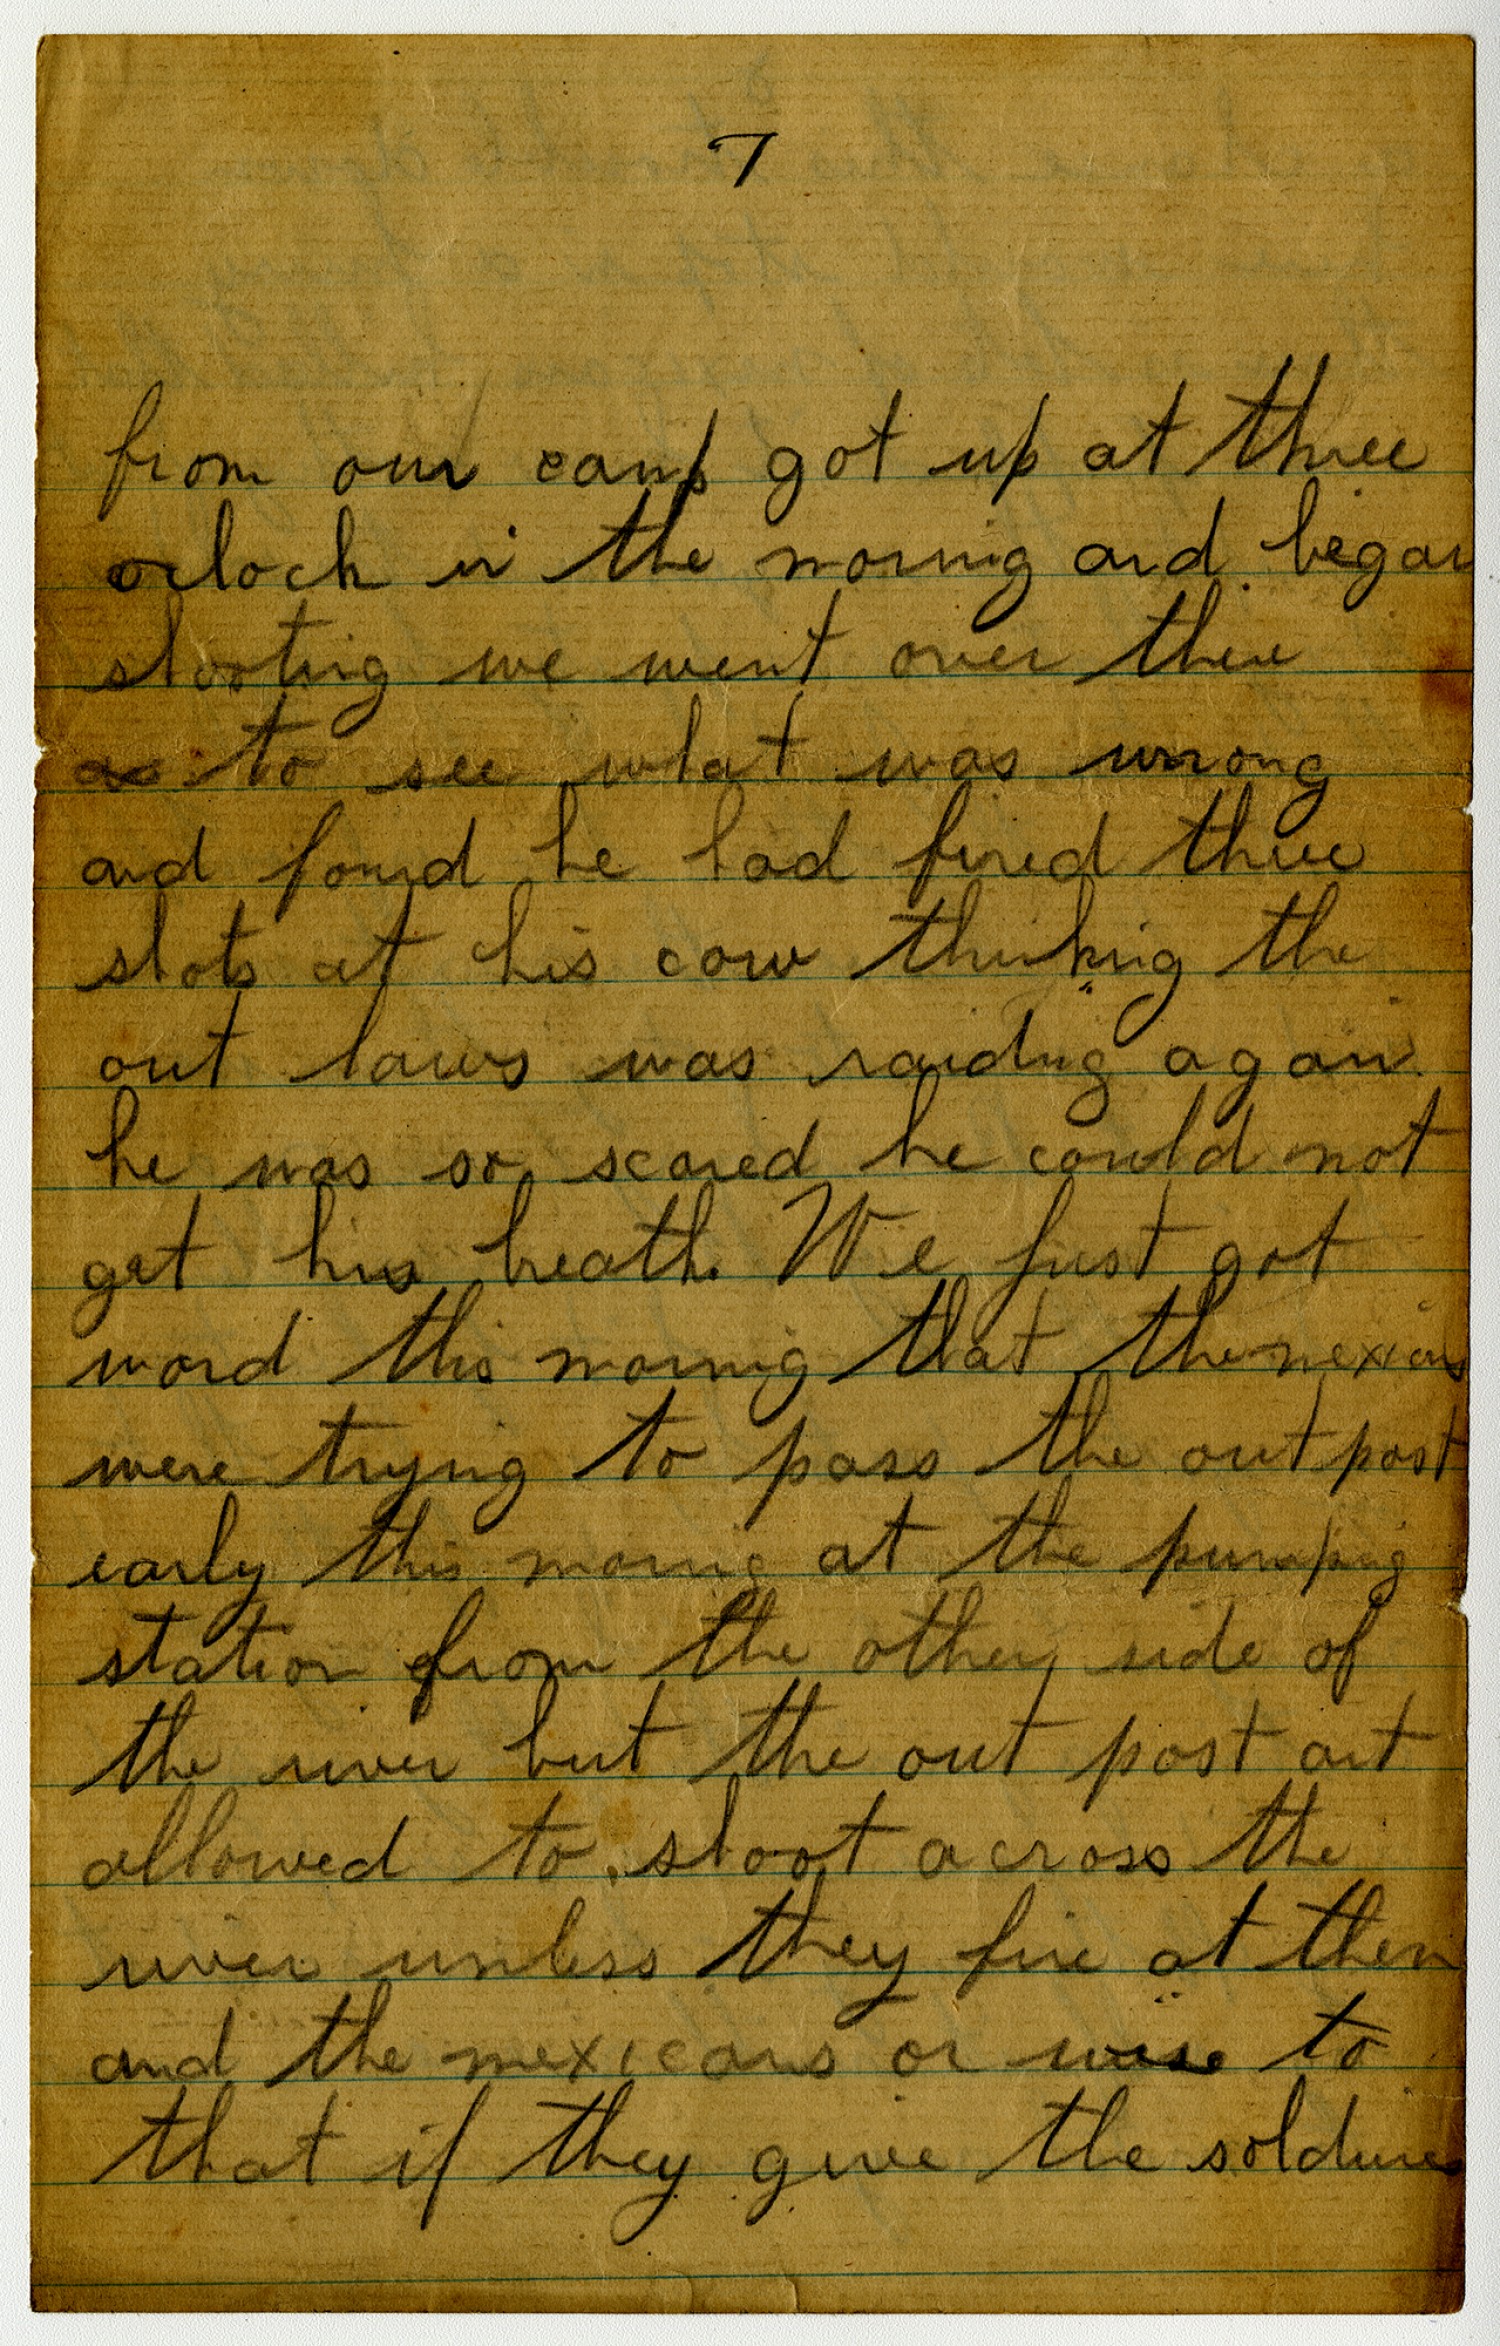 7
from our camp got up at three
oclock in the morning and began
shooting we went over there
as to see what was wrong
and found he had fired three
shots at his cow thinking the
out laws was raiding again
he was so scared he could not
get his breath. We just got
word this morning that the mexicans
were trying to pass the out post
early this morning at the pumping
station from the other side of
the river but the out post art
allowed to shoot across the
river unless they fire at them
and the mexicans or wise to
that if they give the soldiers